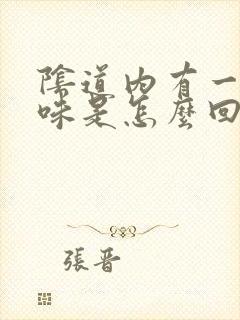 陰道內有一
味是怎麼回
張晋